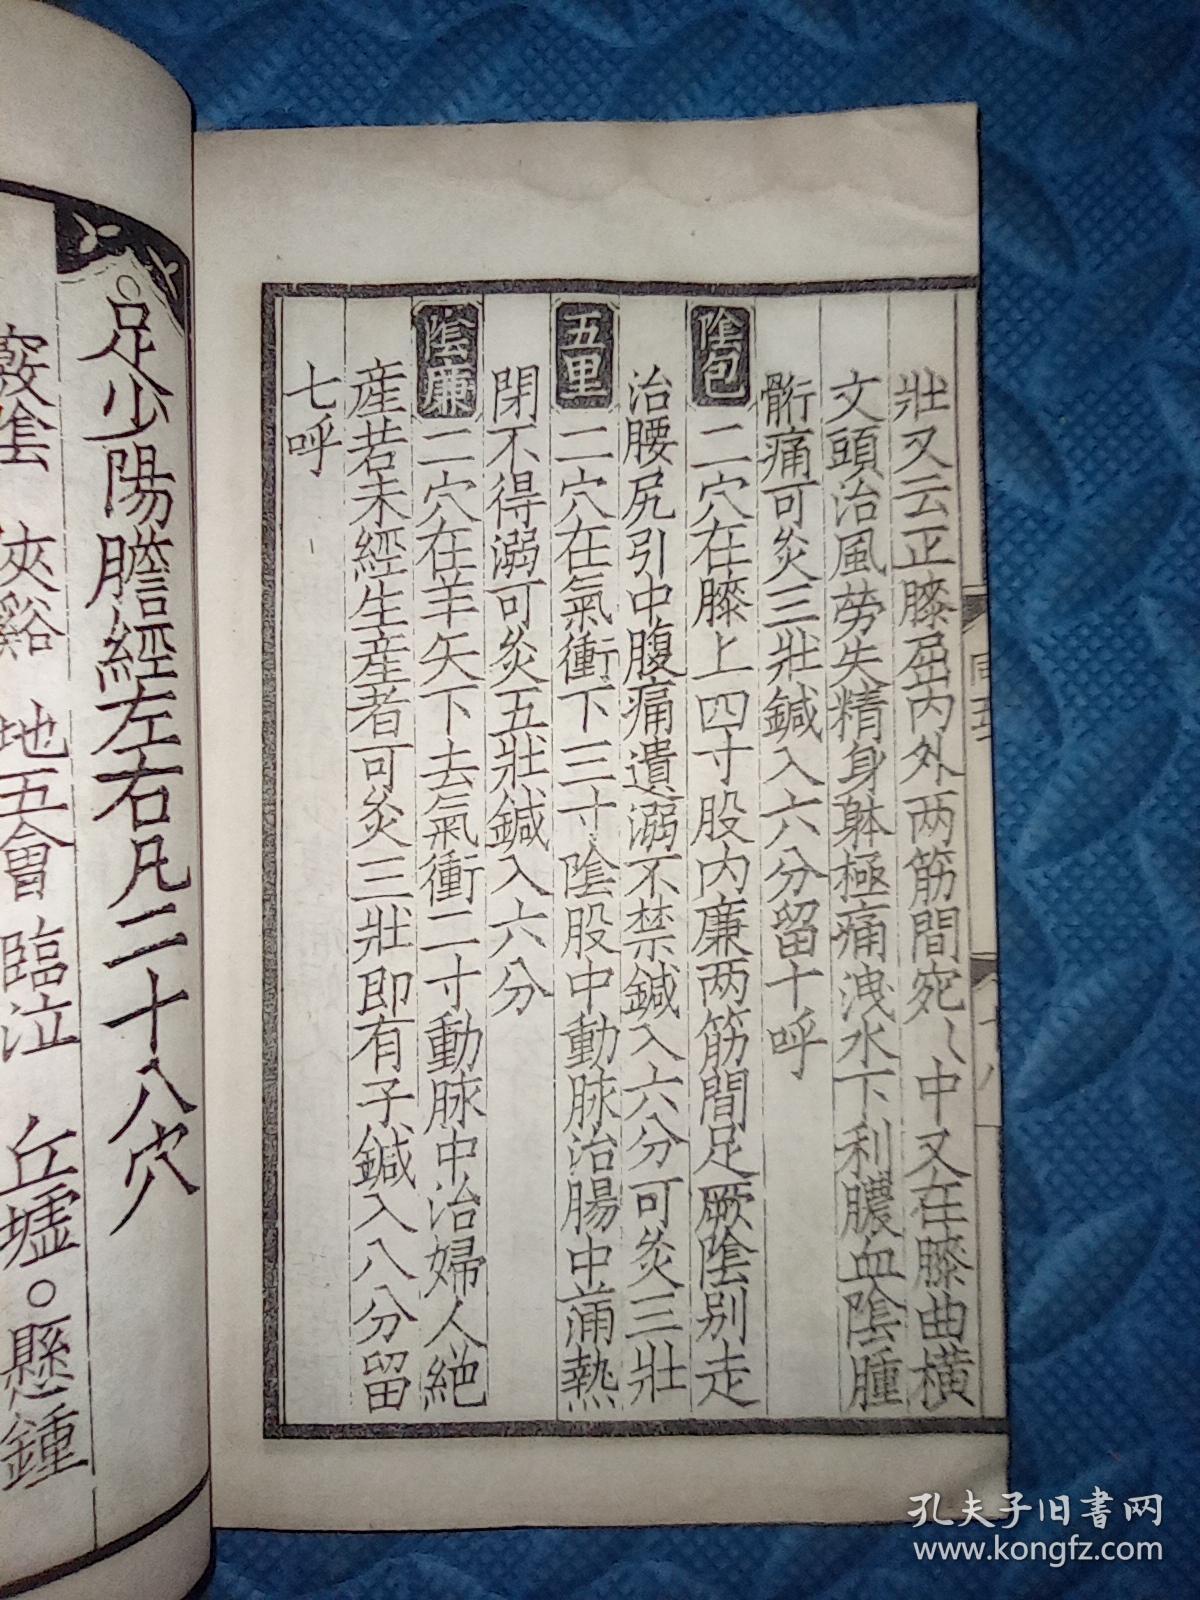 壯又云正膝屈内外两筋間宛〻中又在膝曲横
文頭治風勞失精身躰極痛洩水下利膿血陰腫
䯒痛可灸三壯鍼入六分留十呼
陰包二穴在膝上四寸股内廉两筋間足厥陰別走
治腰尻引中腹痛遺溺不禁鍼入六分可灸三壯
五里二穴在氣衝下三寸陰股中動脉治腸中滿熱
閉不得溺可灸五壯鍼入六分
陰廉二穴在羊矢下去氣衝二寸動脉中治婦人絶
産若未經生産者可灸三壯即有子鍼入八分留
七呼
足少陽膽經左右凡二十八穴
竅陰 俠谿 地五會 臨泣 丘墟。懸鍾
孔夫子旧书网
www.kongfz.com